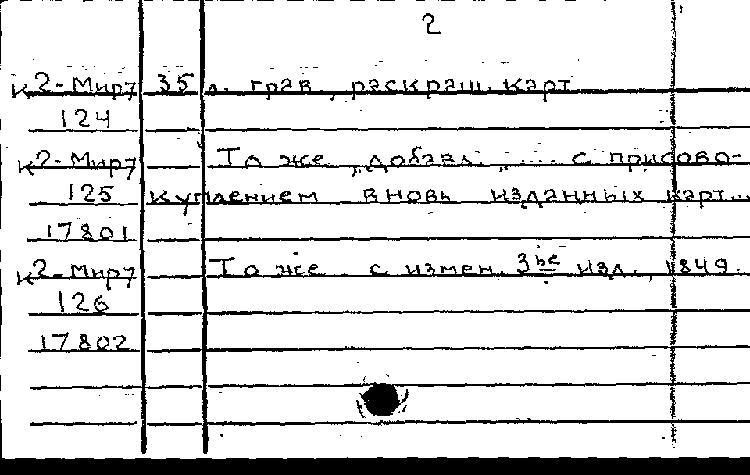 2
К2-Мир7 35 л. грав., раскраш. карт
124
К2-Мир7 То же, добавл: „.... с присово-
125 куплением вновь изданных карт...
17801
К2-Мир7 То же с измен. 3ье изд., 1849.
126
17802